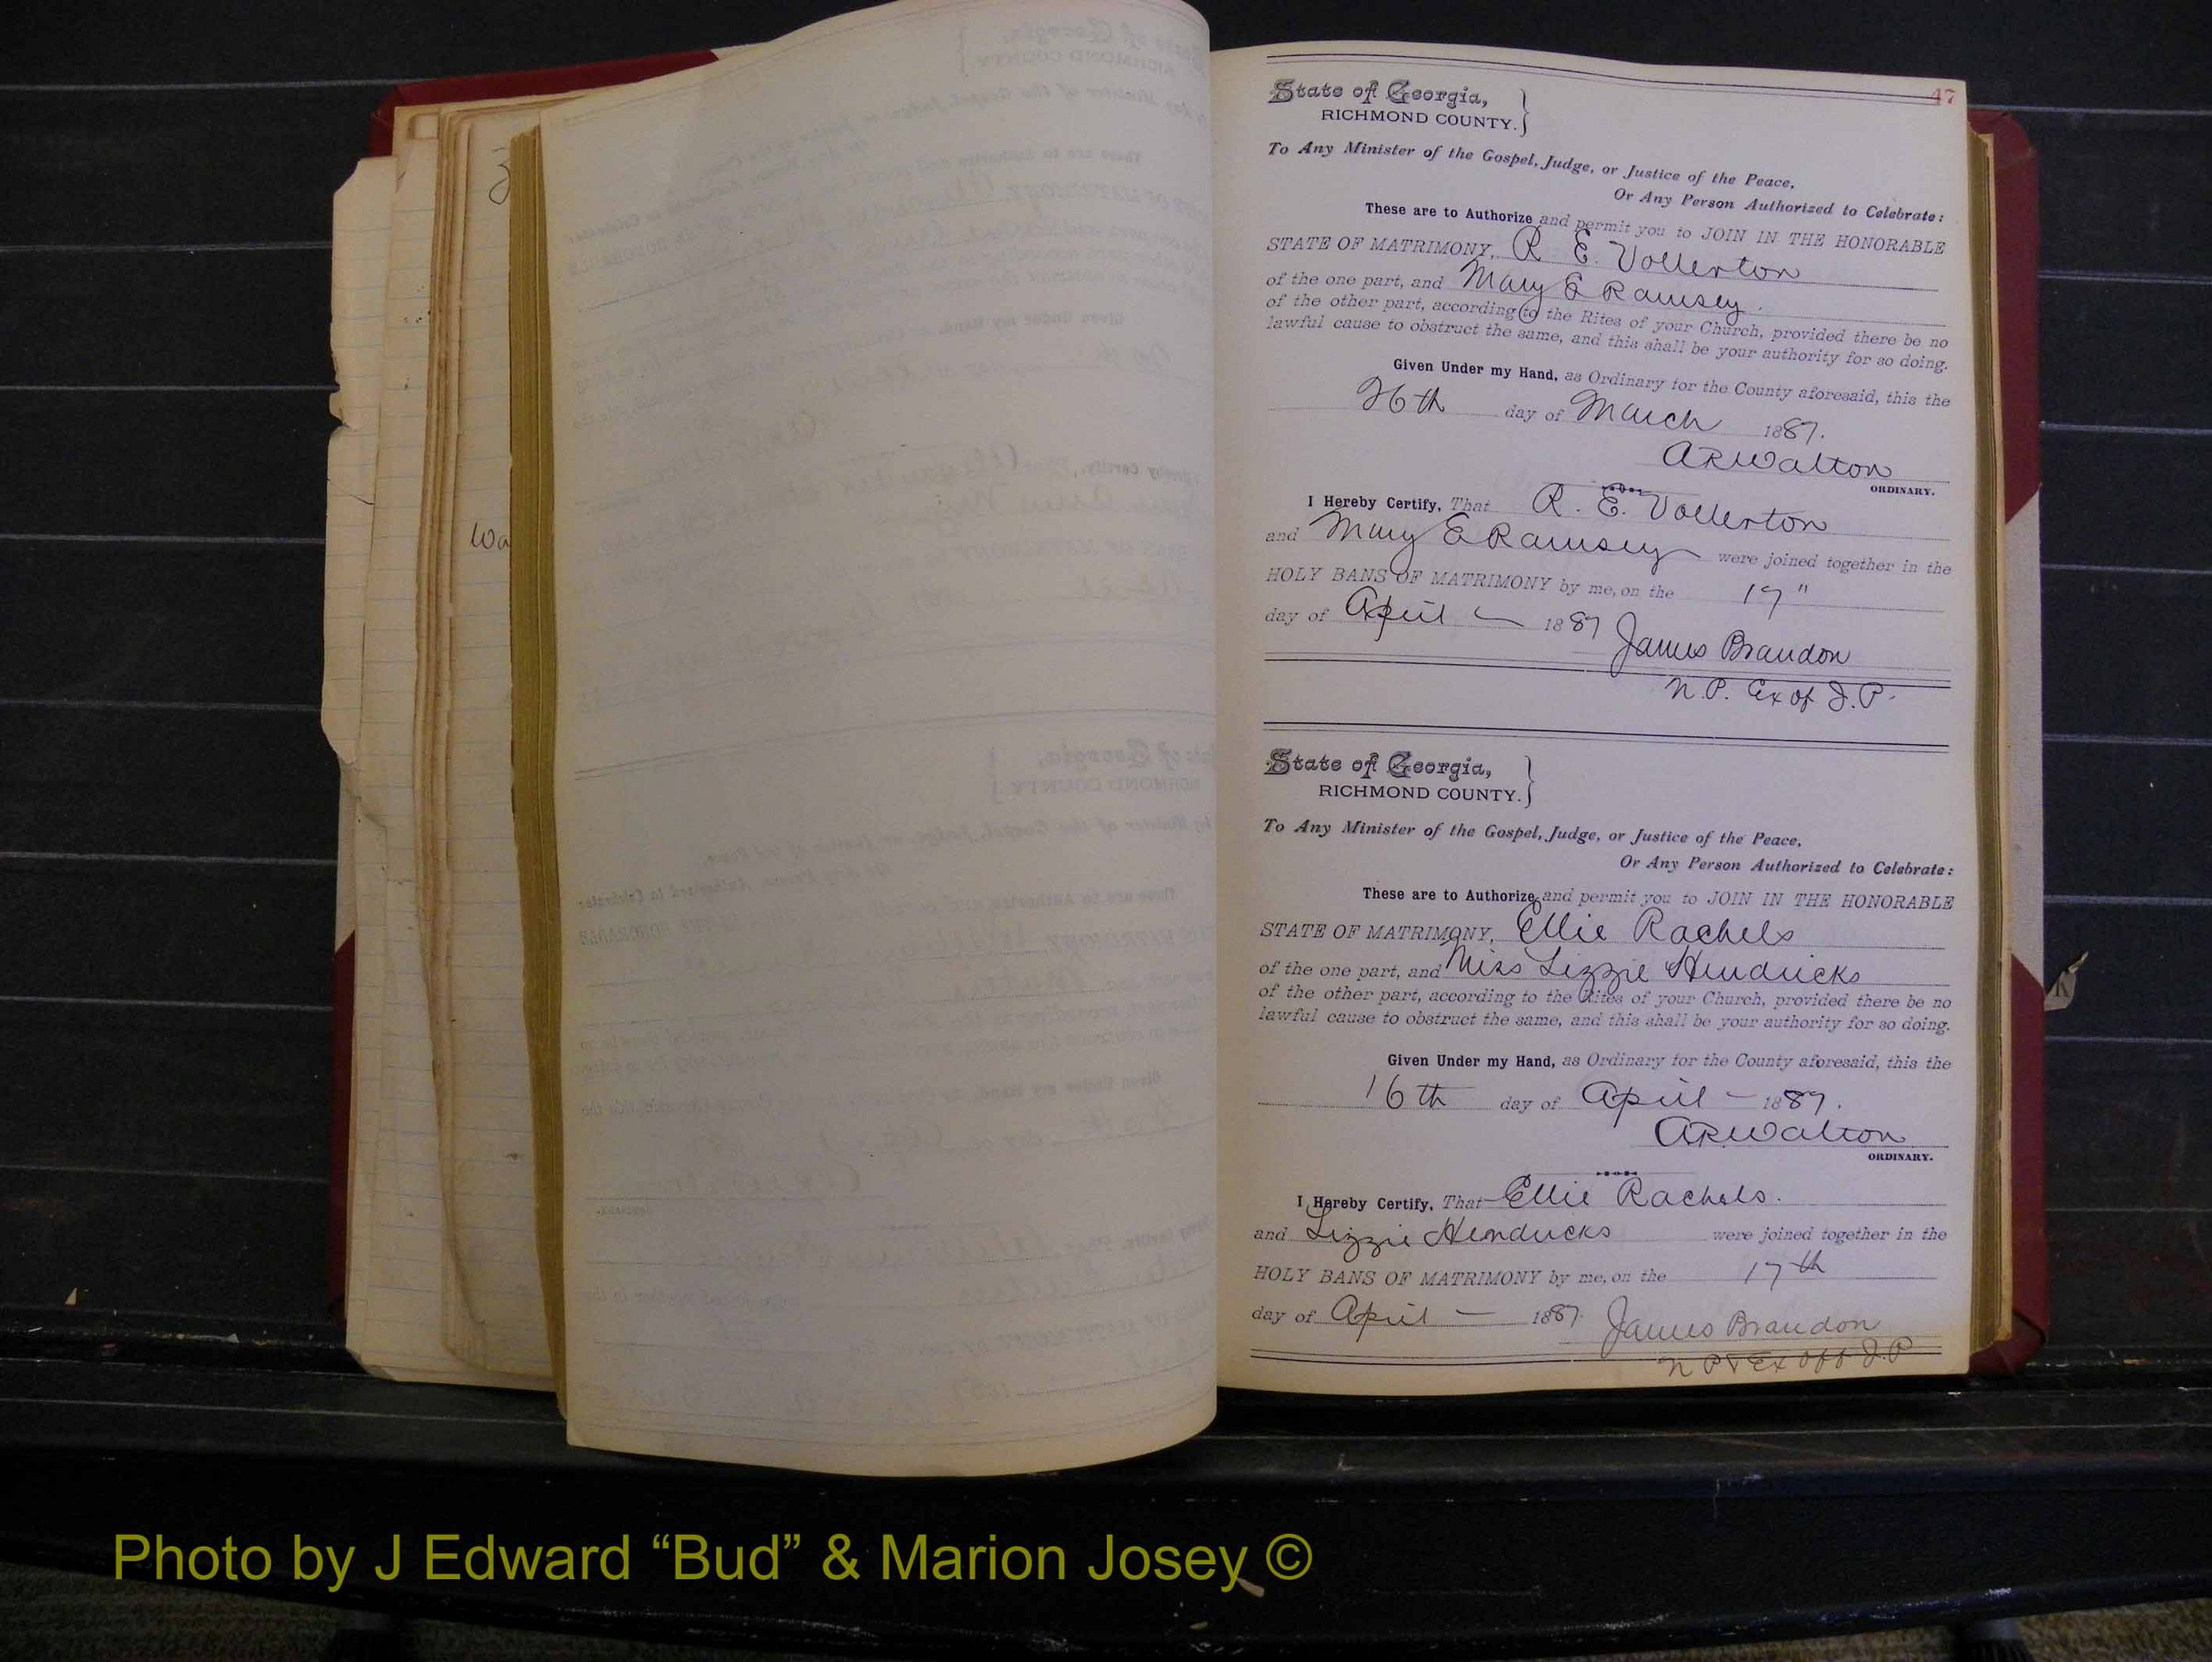 47
State of Georgia,
RICHMOND COUNTY.
To Any Minister of the Gospel, Judge, or Justice of the Peace,
Or Any Person Authorized to Celebrate:
These are to Authorize and permit you to JOIN IN THE HONORABLE
STATE OF MATRIMONY, R. E. Vollerton
of the one part, and Mary E Ramsey
of the other part, according to the Rites of your Church, provided there be no
lawful cause to obstruct the same, and this shall be your authority for so doing.
Given Under my Hand, as Ordinary for the County aforesaid, this the
26th day of March 1887.
A R Walton
ORDINARY.
I Hereby Certify, That R. E. Vollerton
and Mary E Ramsey were joined together in the
HOLY BANS OF MATRIMONY by me, on the 17"
day of April 1887
James Brandon
N.P. Ex Of J.P.
State of Georgia,
RICHMOND COUNTY.
To Any Minister of the Gospel, Judge, or Justice of the Peace,
Or Any Person Authorized to Celebrate:
These are to Authorize and permit you to JOIN IN THE HONORABLE
STATE OF MATRIMONY, Ellie Rachels
of the one part, and Miss Lizzie Hendricks
of the other part, according to the Rites of your Church, provided there be no
lawful cause to obstruct the same, and this shall be your authority for so doing.
Given Under my Hand, as Ordinary for the County aforesaid, this the
16th day of April — 1887.
A R Walton
ORDINARY.
I Hereby Certify, That Ellie Rachels.
and Lizzie Hendricks were joined together in the
HOLY BANS OF MATRIMONY by me, on the 17th
day of April — 1887.
James Brandon
N P & Ex Off J.P
Photo by J Edward “Bud” & Marion Josey ©